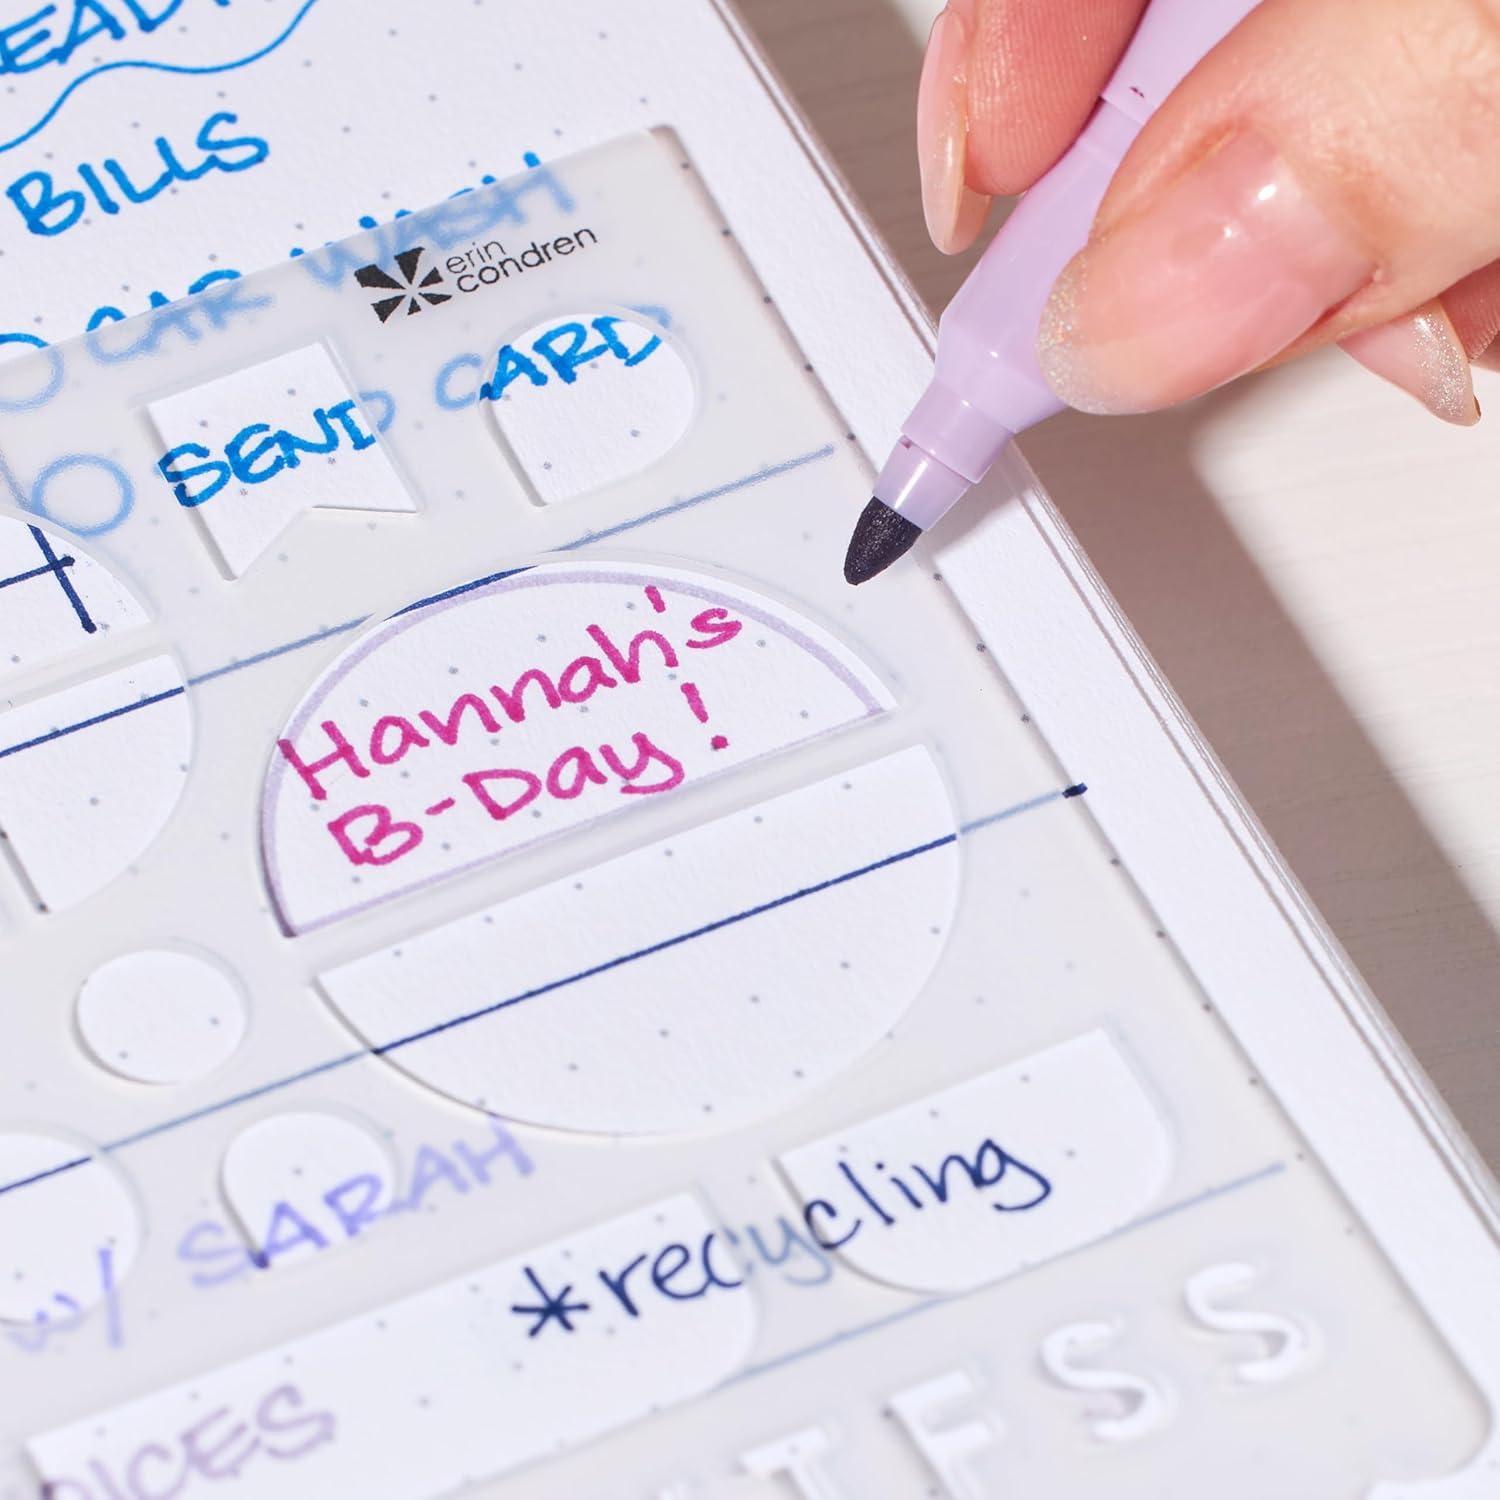 BILLS
CAR WASH
erin
condren
SEND CARD
Hannah's
B-Day!
w/ SARAH
*recycling
S S